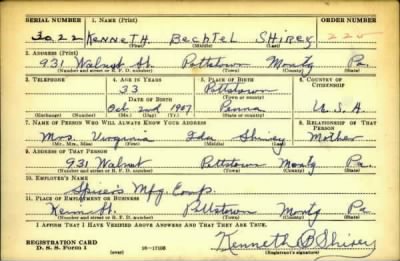 SERIAL NUMBER 1. Name (Print) ORDER NUMBER
3022 KENNETH Bechtel SHIREY 220
(First) (Middle) (Last)
2. Address (Print)
931 Walnut St. Pottstown Montg Pa.
(Number and street or R. F. D. number) (Town) (County) (State)
3. Telephone 4. Age in Years 5. Place of Birth 6. Country of Citizenship
33 Pottstown
Date of Birth (Town or county)
Oct 2nd 1907 Penna U.S.A.
(Exchange) (Number) (Mo.) (Day) (Yr.) (State or country)
7. Name of Person Who Will Always Know Your Address 8. Relationship of That Person
Mrs. Virginia Ida Shirey Mother
(Mr., Mrs., Miss) (First) (Middle) (Last)
9. Address of That Person
931 Walnut Pottstown Montg Pa.
(Number and street or R. F. D. number) (Town) (County) (State)
10. Employer's Name
Spicer's Mfg. Corp.
11. Place of Employment or Business
St. Pottstown Montg Pa.
(Number and street or R. F. D. number) (Town) (County) (State)
I Affirm That I Have Verified Above Answers and That They Are True.
REGISTRATION CARD
D. S. S. Form 1 (over) 16—17105 Kenneth B Shirey
(Registrant's signature)